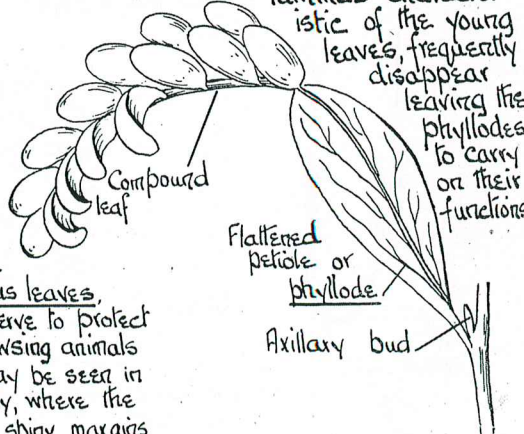 istic of the young
leaves, frequently
disappear
leaving the
phyllodes
to carry
on their
functions
Compound
leaf
Flattened
petiole or
phyllode
Axillary bud
us leaves,
erve to protect
wsing animals
ay be seen in
y, where the
margins